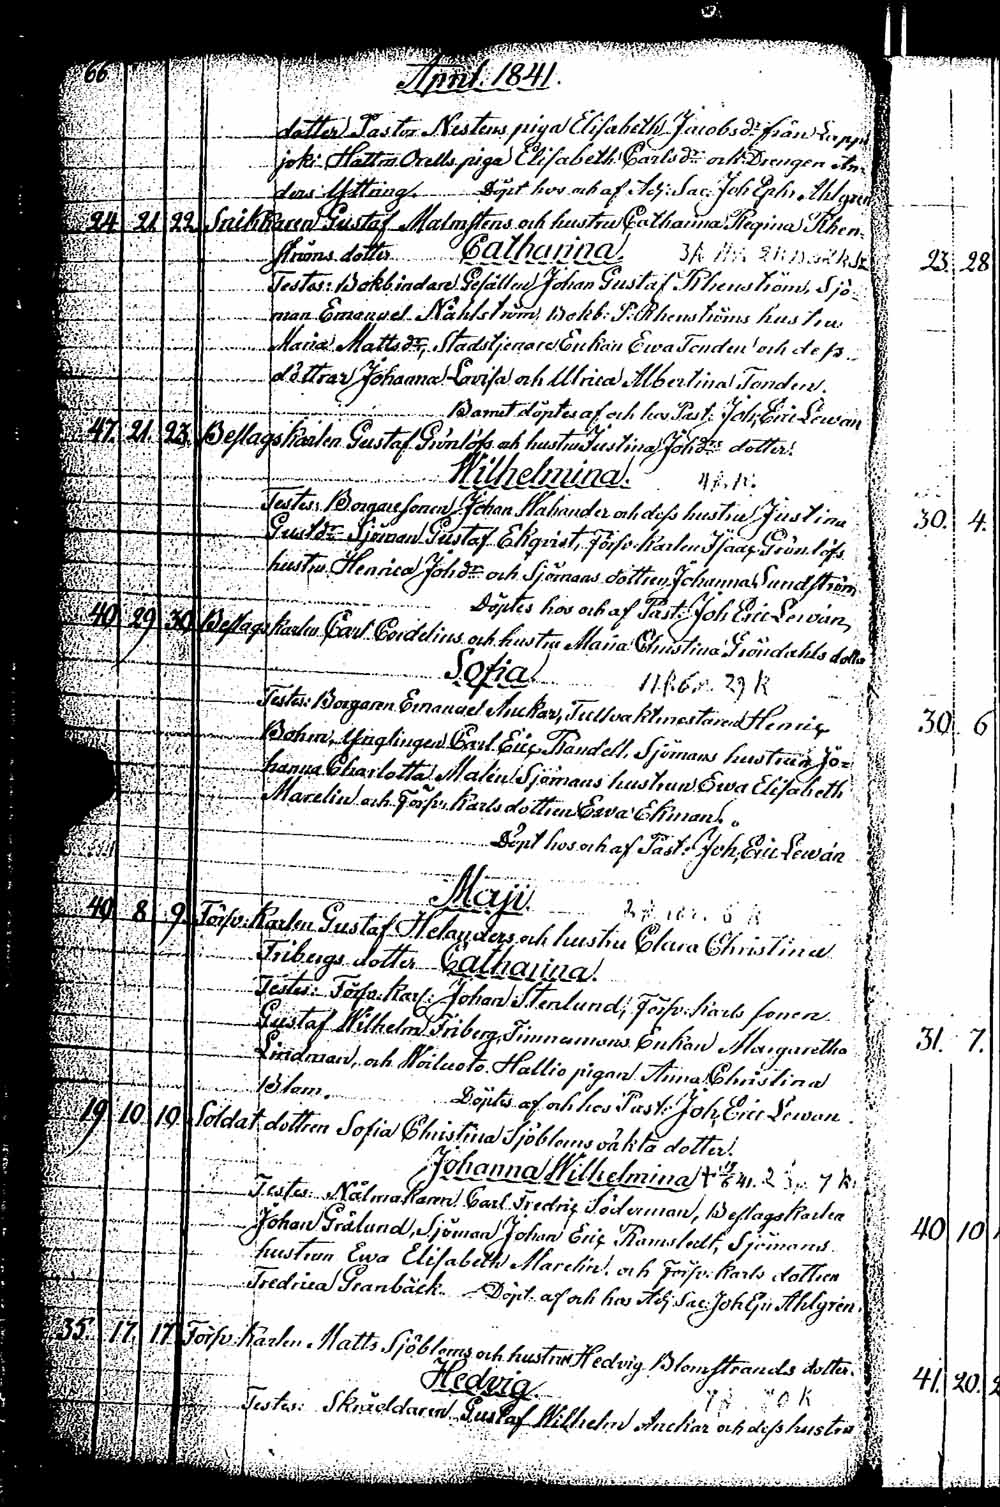 66
April. 1841.
dotter Pastor Nestens piga Elisabeth Jacobsdr från Lapp
joki Hattm. Orells piga Elisabeth Carlsdr och Drengen An-
ders Ytting. Döpt hos och af Adj: Sac: Joh Ephr. Ahlgren
24 21. 22. Snikkaren Gustaf Malmstens och hustru Catharina Regina Rhen-
ströms dotter Catharina.
Testes: Bokbindare Gesällen Johan Gustaf Rhenström, Sjö-
man Emanuel Nählström, Bokb: P. Rhenströms hustru
Maria Mattsdr, Stadstjenare Enkan Ewa Tonden och dess
döttrar Johanna Lovisa och Ulrica Albertina Tonden.
Barnet döptes af och hos Past: Joh, Eric Lewan
47. 21. 23. Beslagskarlen Gustaf Grönlöfs och hustru Justina Johdrs dotter.
Wilhelmina.
Testes: Borgaresonen Johan Wahander och dess hustru Justina
Gustdr Sjöman Gustaf Ekqvist, Försv. Karlen Isaac Grönlöfs
hustru Henrica Johdr och Sjömans dottren Johanna Sundström
Döptes hos och af Past: Joh Eric Lewan,
40. 29 30. Beslagskarlen Carl Cordelius och hustru Maria Christina Gröndahls dotter
Sofia 11 B. 6 29 K
Testes: Borgaren Emanuel Anckar, Tullvaktmestaren Henric
Böhm, Ynglingen Carl Eric Trandell, Sjömans hustrun Jo-
hanna Charlotta Malin Sjömans hustrun Ewa Elisabeth
Marelin och Försv: Karls dottren Ewa Ekman.
Döpt hos och af Past: Joh, Eric Lewan
Maji.
40. 8. 9. Försv: Karlen Gustaf Helanders och hustru Clara Christina
Fribergs dotter Catharina.
Testes: Försv: Karl: Johan Stenlund, Försv: Karls sonen
Gustaf Wilhelm Friberg, Timmermans Enkan Margaretha
Lindman, och Woiluoto Hallio pigan Anna Christina
Blom. Döptes af och hos Past: Joh, Eric Lewan.
19. 10. 10. Soldat dottren Sofia Christina Sjöblems oäkta dotter.
Johanna Wilhelmina
Testes: Nålmakaren Carl Fredric Söderman, Beslagskarlen
Johan Grålund, Sjöman Johan Eric Ramstedt, Sjömans
hustrun Ewa Elisabeth Marelin. och Försv: karls dottren
Fredrica Granbäck. Döpt af och hos Adj. Sac: Joh Ep. Ahlgren.
35. 17. 17. Försv: Karlen Matts Sjöblems och hustrun Hedvig Blomstrands dotter.
Hedvig.
Testes: Skräddaren Gustaf Wilhelm Anckar och dess hustru
23. 28
30. 4.
30. 6
31. 7.
40 10
41. 20.